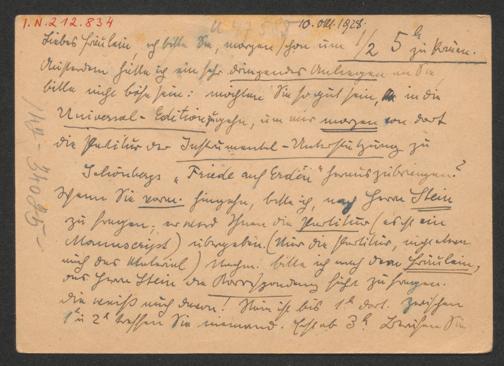 I.N.212.834
10. Okt. 1928.
Liebes Fräulein, ich bitte Sie, morgen schon um 1/2 5h zu kommen.
Außerdem hätte ich ein sehr dringendes Anliegen an Sie,
bitte nicht böse sein: möchten Sie so gut sein, in die
Universal-Edition zu gehn, um mir morgen von dort
die Partitur der Instrumental-Unterstützung zu
Schönbergs "Friede auf Erden" herauszubringen?
Wenn Sie vorm. hingehn, bitte ich, nach Herrn Stein
zu fragen; er wird Ihnen die Partitur (es ist ein
Manuscript) übergeben. (Nur die Partitur, nicht etwa
auch das Material) Nachm. bitte ich nach dem Fräulein,
das Herrn Stein die Korrespondenz führt zu fragen.
die weiß auch davon! Stein ist bis 1h dort. Zwischen
1h u 2h treffen Sie niemand. Erst ab 3h